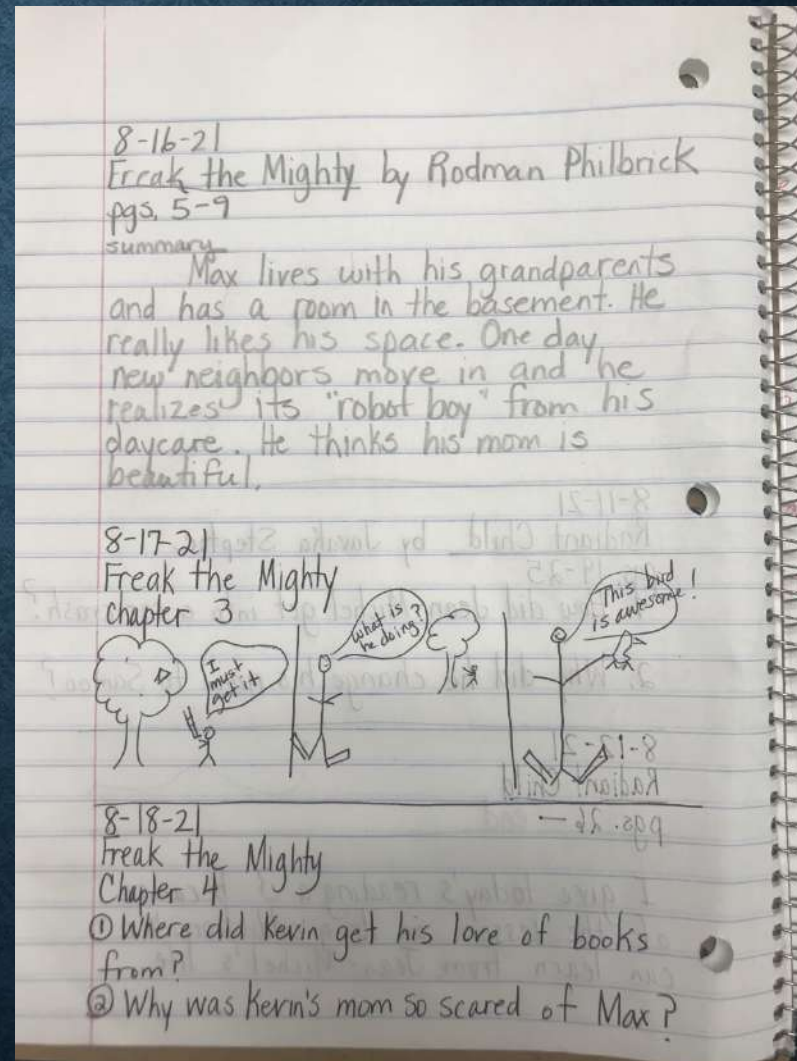 8-16-21
Freak the Mighty by Rodman Philbrick
pgs. 5-9
summary
Max lives with his grandparents
and has a room in the basement. He
really likes his space. One day,
new neighbors move in and he
realizes its "robot boy" from his
daycare. He thinks his mom is
beautiful.
8-17-21
Freak the Mighty
Chapter 3
I
must
get it
What is
he doing?
This bird
is awesome!
8-18-21
Freak the Mighty
Chapter 4
① Where did Kevin get his love of books
from?
② Why was Kevin's mom so scared of Max?